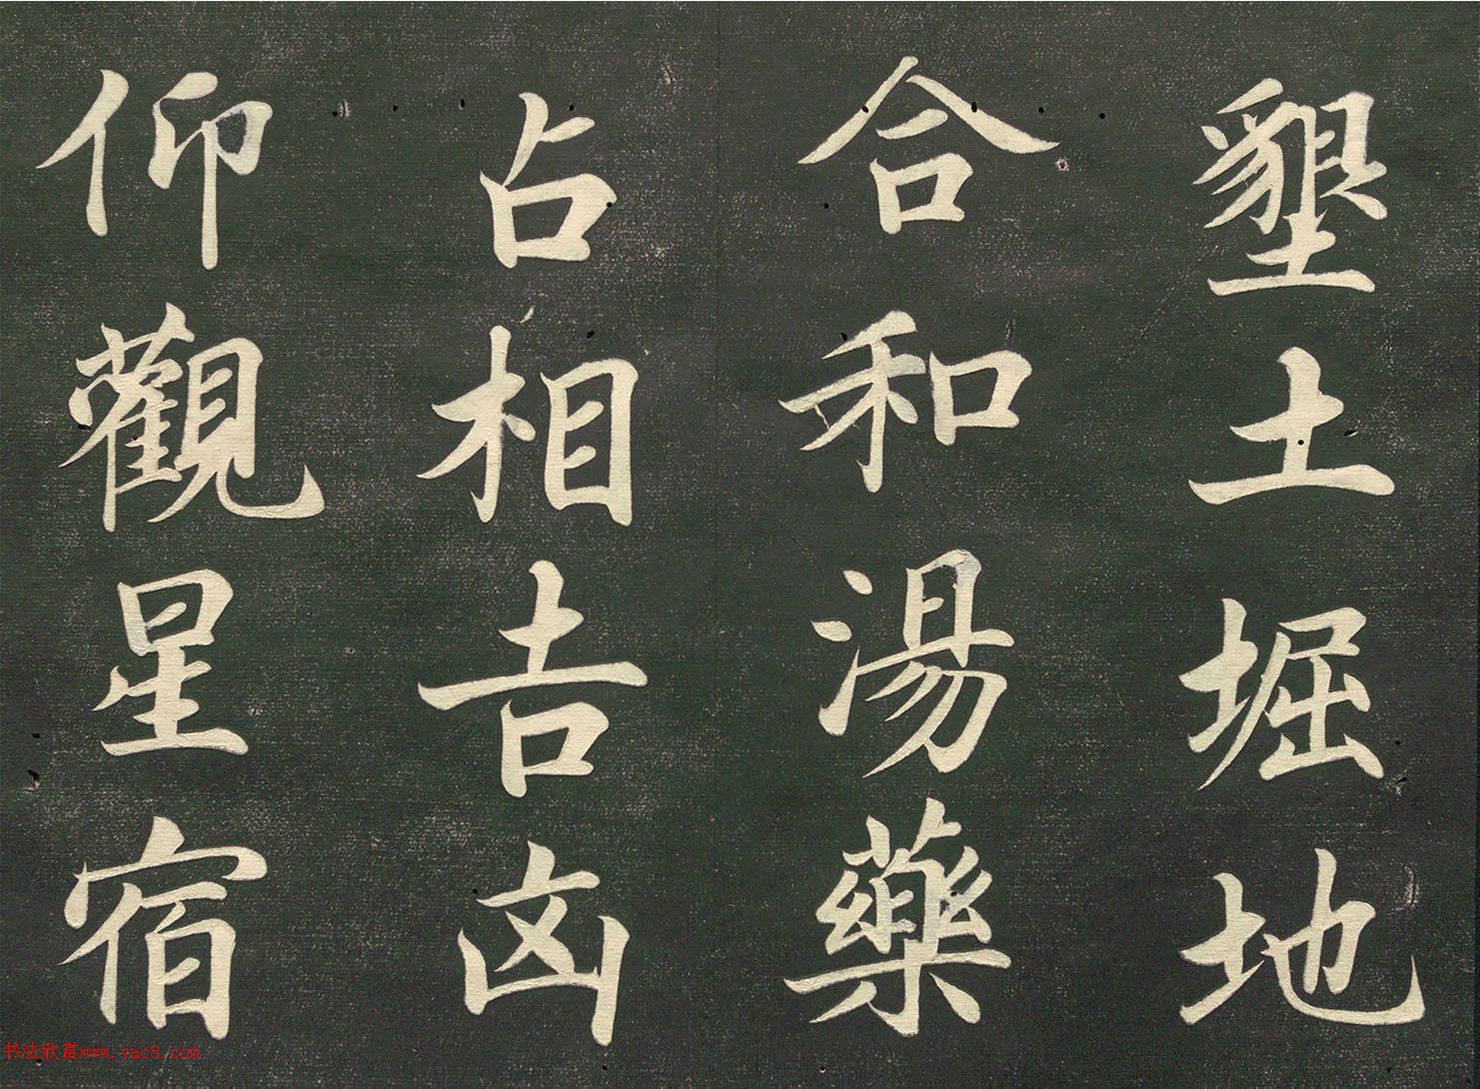 墾土堀地
合和湯藥
占相吉凶
仰觀星宿
书法欣赏www.yac8.com